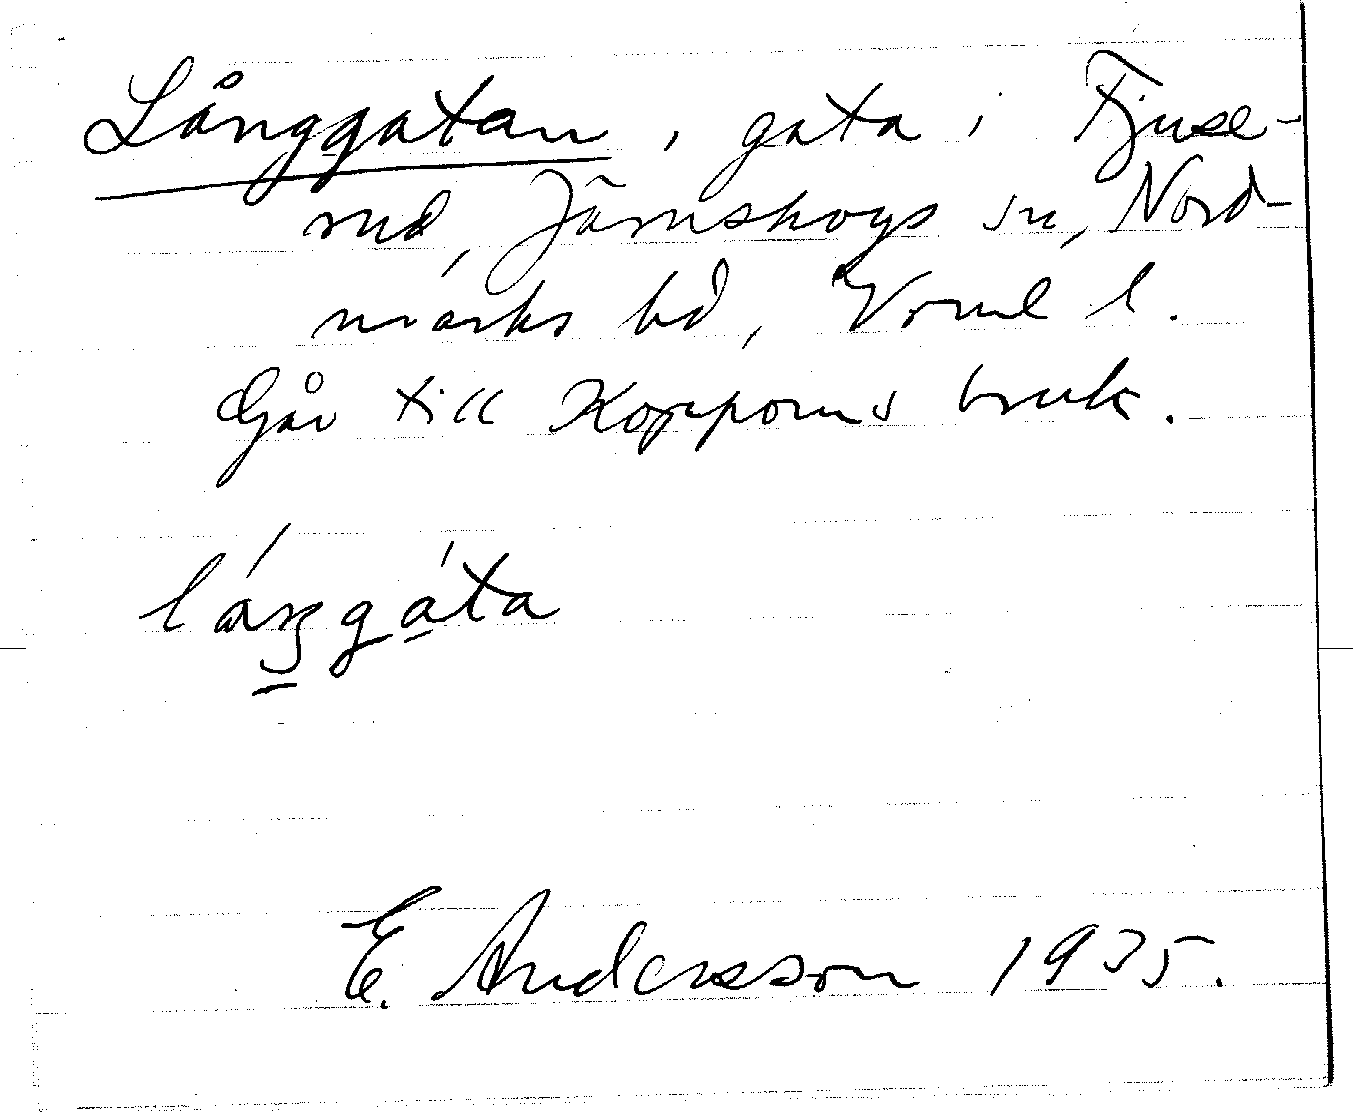 Långgatan, gata i Fjuse-
rud, Järnskogs sn, Nord-
marks hd, Vrml l.
Går till Koppoms bruk.
láŋgáta
E. Andersson 1935.